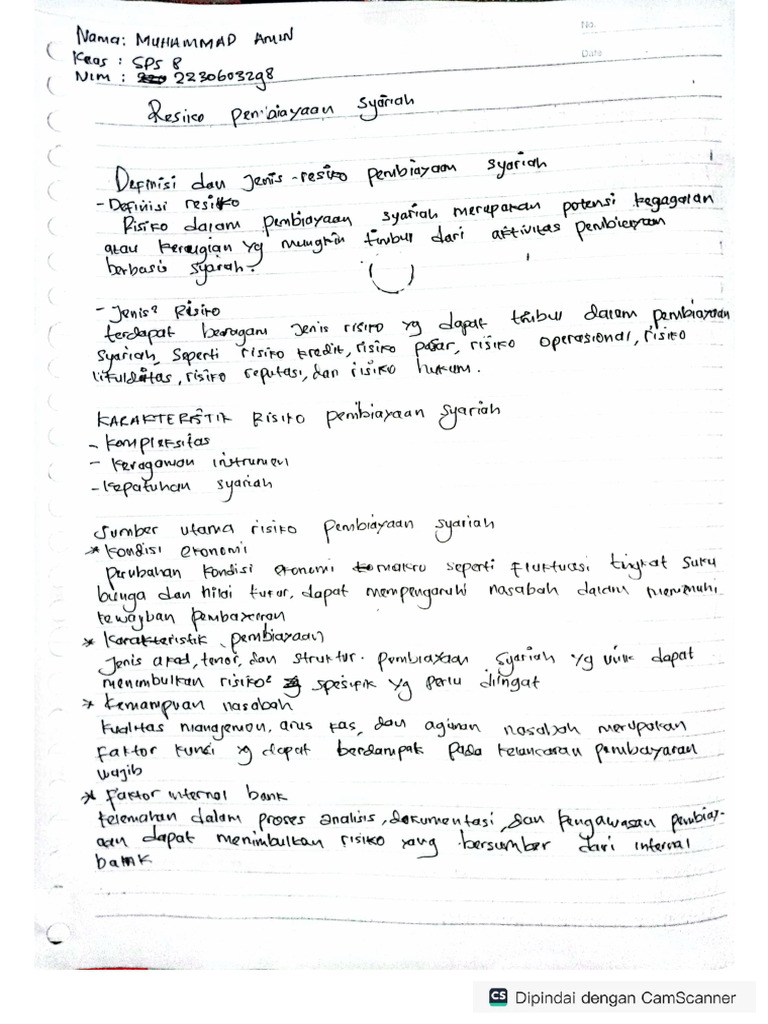 No.
Date
Nama: MUHAMMAD AMIN
Keas : SPS 8
NIM : 2230603298
Resiko pembiayaan syariah
Definisi dan Jenis-resiko pembiayaan syariah
- Definisi resiko
Risiko dalam pembiayaan syariah merupakan potensi kegagalan
atau kerugian yg mungkin timbul dari aktivitas pembiayaan
berbasis syariah.
- Jenis² Risiko
terdapat beragam Jenis risiko yg dapat timbul dalam pembiayaan
syariah, seperti risiko kredit, risiko pasar, risiko operasional, risiko
likuiditas, risiko reputasi, dan risiko hukum.
KARAKTERISTIK Risiko pembiayaan syariah
- kompleksitas
- keragaman instrumen
- kepatuhan syariah
Sumber utama risiko pembiayaan syariah
* kondisi ekonomi
perubahan kondisi ekonomi makro seperti fluktuasi tingkat suku
bunga dan nilai tukar, dapat mempengaruhi nasabah dalam memenuhi
kewajiban pembayaran
* Karakteristik pembiayaan
Jenis akad, tenor, dan struktur pembiayaan syariah yg unik dapat
menimbulkan risiko² spesifik yg perlu diingat
* kemampuan nasabah
kualitas manajemen, arus kas, dan agunan nasabah merupakan
faktor kunci yg dapat berdampak pada kelancaran pembayaran
wajib
* faktor internal bank
kelemahan dalam proses analisis, dokumentasi, dan pengawasan pembiay-
aan dapat menimbulkan risiko yang bersumber dari internal
bank
CS Dipindai dengan CamScanner